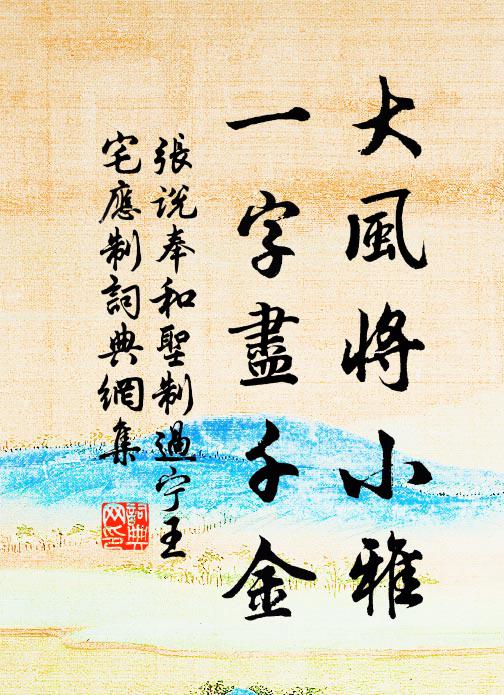 大風將小雅
一字盡千金
張説奉和聖制過宁王
宅應制詞典網集
詞典
网印